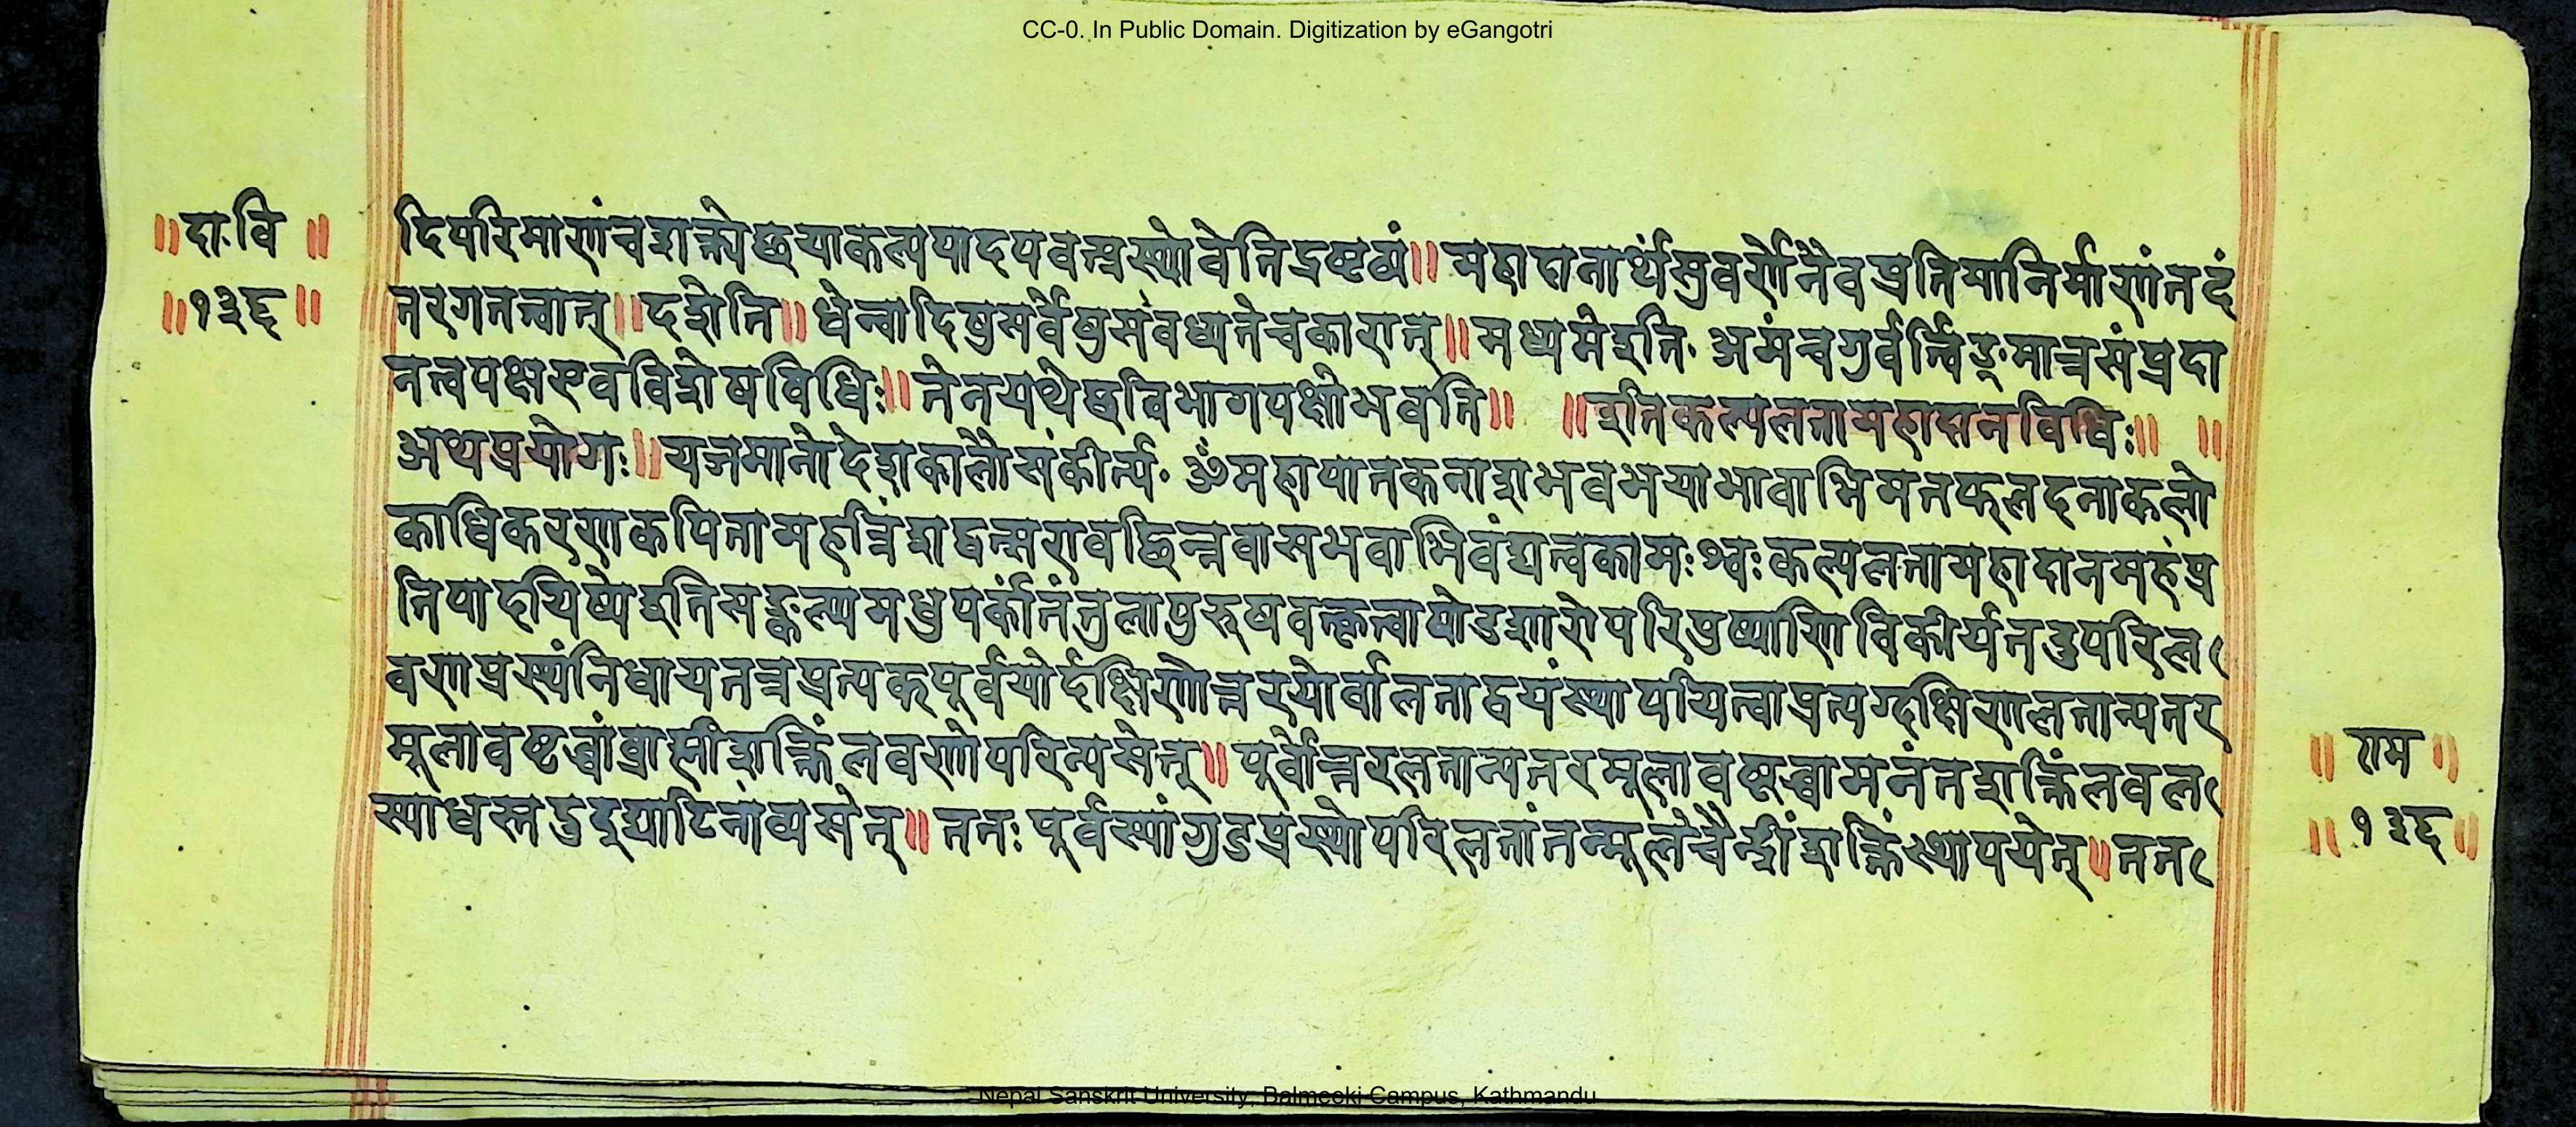 CC-0. In Public Domain. Digitization by eGangotri
॥दा.वि॥
॥१३६॥
दिपरिमाणंचशक्त्येछयाकल्पपादपवत्प्रस्थोवेतिद्रष्टव्यं॥महादानार्थसुवर्णेनैवप्रतिमानिर्माणंतदं
तरगतत्वात्॥दशेति॥धेन्वादिषुसर्वेषुसंवध्यतेचकारात्॥मध्यमेइति.असंत्वगुर्वर्त्विङ्मात्रसंप्रदा
नत्वपक्षएवविशेषविधिः॥तेनयथेछविभागपक्षोभवति॥ ॥इतिकल्पलतामहादानविधिः॥ ॥
अथप्रयोगः॥यजमानोदेशकालौसंकीर्त्य.ॐमहापातकनाशभवभयाभावाभिमतफलदनाकलो
काधिकरणकपितामहत्रिंशद्वत्सरावछिन्नवासभवाभिवंद्यत्वकामःश्वःकल्पलतामहादानमहंप्र
तिपादयिष्येइतिसङ्कल्प्यमधुपर्कांतंतुलापुरुषवत्कृत्वाषोडशारोपरिपुष्पाणिविकीर्यतदुपरिल
वणप्रस्थंनिधायतत्रप्रत्यक्पूर्वयोर्दक्षिणोत्तरयोर्वालताद्वयंस्थापयित्वाप्रत्यग्दक्षिणलतान्यतर
मूलावष्टब्धांब्राह्मींशक्तिंलवणोपरिन्यसेत्॥पूर्वोत्तरलतान्यतरमूलावष्टब्धामनंतशक्तिंलवल
स्याधस्तद्वदुद्घाटितांव्यसेत्॥ततःपूर्वस्यांगुडप्रस्थोपरिलतांतन्मूलेचैन्द्रींशक्तिंस्थापयेत्॥तत
॥राम॥
॥१३६॥
Nepal Sanskrit University, Balmeeki Campus, Kathmandu